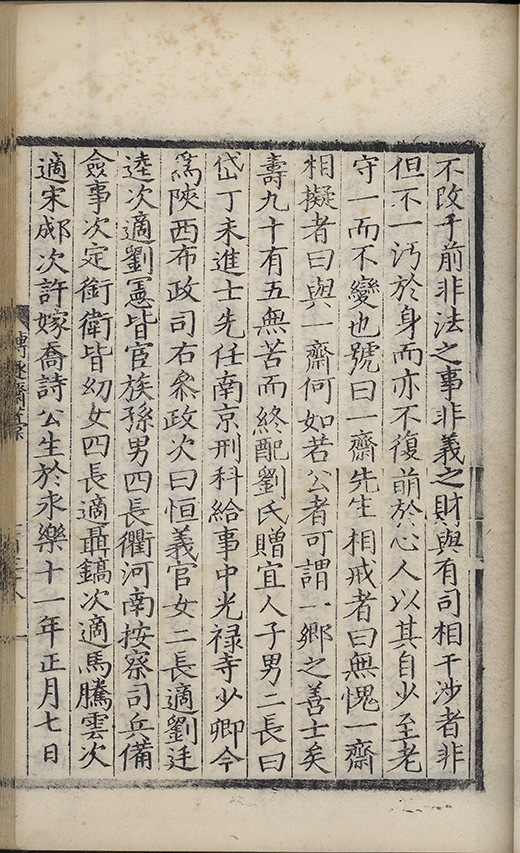 不改于前非法之事非義之財與有司相干涉者非
但不一汚於身而亦不復萌於心人以其自少至老
守一而不變也號曰一齋先生相戒者曰無愧一齋
相擬者曰與一齋何如若公者可謂一鄉之善士矣
壽九十有五無苦而終配劉氏贈宜人子男二長曰
岱丁未進士先任南京刑科給事中光禄寺少卿今
爲陝西布政司右叅政次曰恒義官女二長適劉廷
逵次適劉憲皆宦族孫男四長衢河南按察司兵備
僉事次定銜衛皆幼女四長適聶鎬次適馬騰雲次
適宋郕次許嫁喬詩公生於永樂十一年正月七日